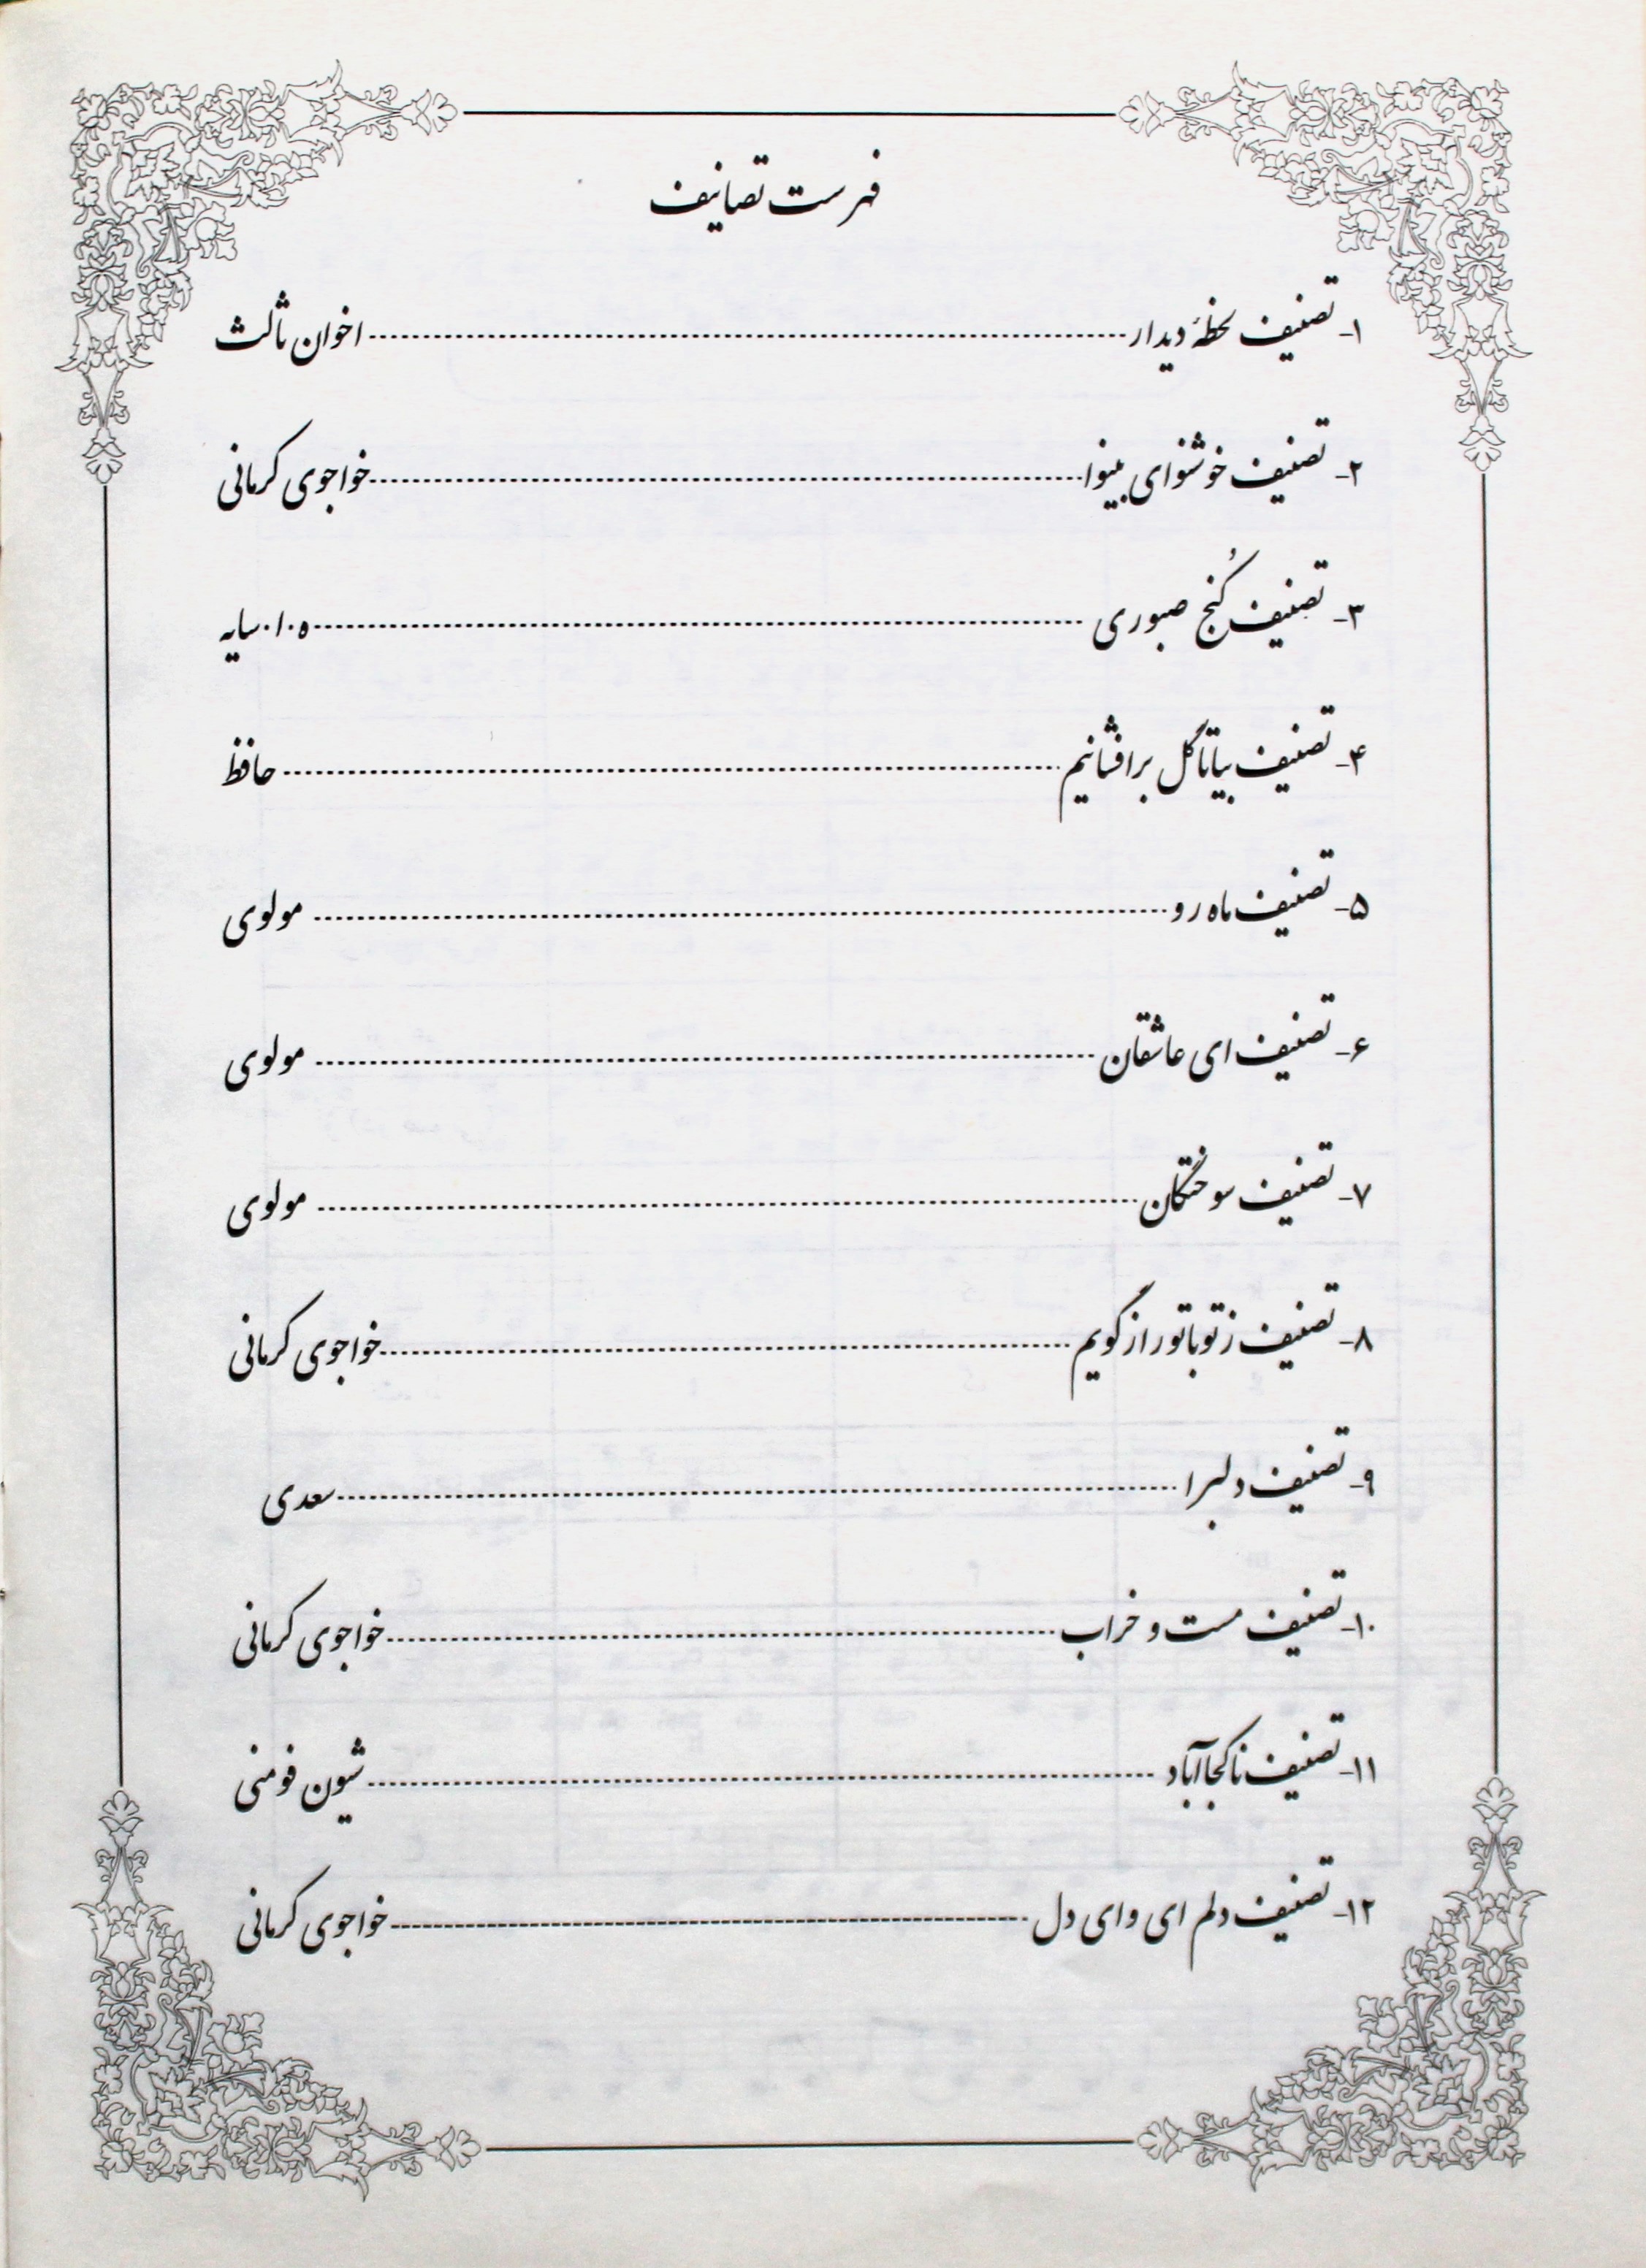 فهرست تصانیف
۱- تصنیف لحظهٔ دیدار اخوان ثالث
۲- تصنیف خوشنوای بینوا خواجوی کرمانی
۳- تصنیف کُنج صبوری ه.ا.سایه
۴- تصنیف بیا تا گل برافشانیم حافظ
۵- تصنیف ماه رو مولوی
۶- تصنیف ای عاشقان مولوی
۷- تصنیف سوختگان مولوی
۸- تصنیف ز تو با تو راز گویم خواجوی کرمانی
۹- تصنیف دلبرا سعدی
۱۰- تصنیف مست و خراب خواجوی کرمانی
۱۱- تصنیف ناکجاآباد شیون فومنی
۱۲- تصنیف دلم ای وای دل خواجوی کرمانی